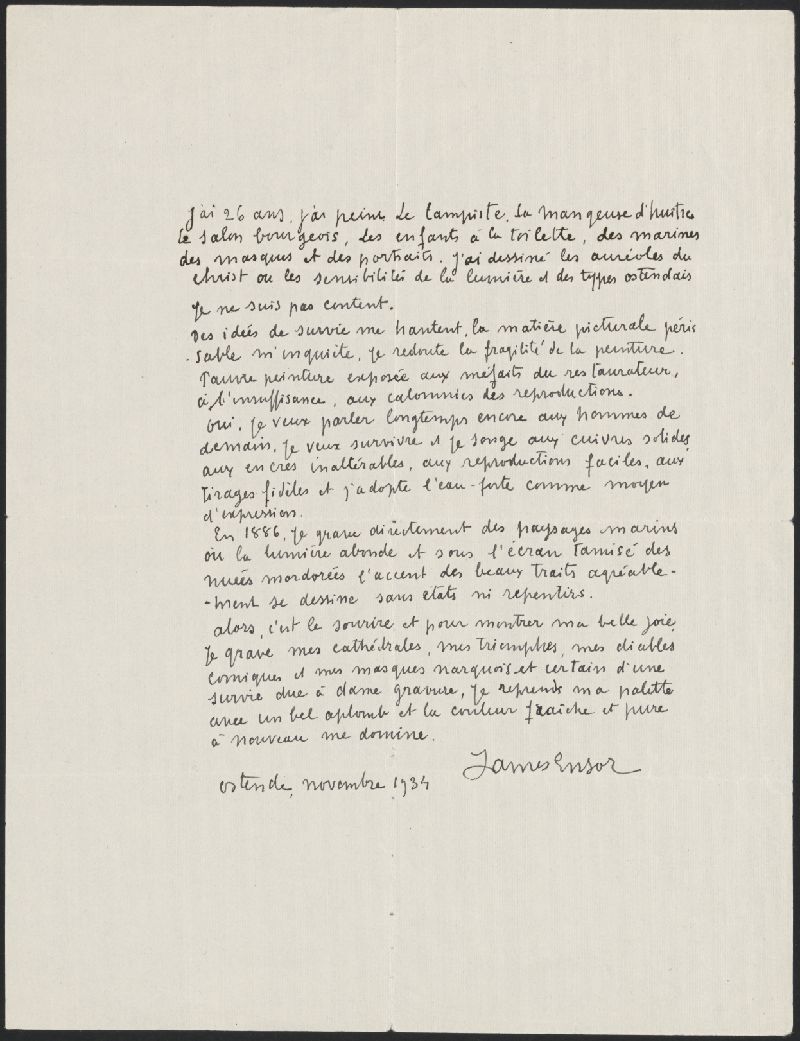 J'ai 26 ans, j'ai peint Le lampiste, La mangeuse d'huitres
Le salon bourgeois, Les enfants à la toilette, des marines
des masques et des portraits. J'ai dessiné les auréoles du
Christ ou les sensibilités de la lumière et des types ostendais
Je ne suis pas content.
Des idées de survie me hantent, la matière picturale péris
-sable m'inquiète, je redoute la fragilité de la peinture.
Pauvre peinture exposée aux méfaits du restaurateur,
à l'insuffisance, aux calomnies des reproductions.
Oui, je veux parler longtemps encore aux hommes de
demain, je veux survivre et je songe aux cuivres solides,
aux encres inaltérables, aux reproductions faciles, aux
tirages fidèles et j'adopte l'eau-forte comme moyen
d'expression.
En 1886, je grave directement des paysages marins
où la lumière abonde et sous l'écran tamisé des
nuées mordorées l'accent des beaux traits agréable-
-ment se dessine sans états ni repentirs.
Alors, c'est le sourire et pour montrer ma belle joie,
je grave mes cathédrales, mes triomphes, mes diables
comiques et mes masques narquois et certain d'une
survie due à dame gravure, je reprends ma palette
avec un bel aplomb et la couleur fraiche et pure
à nouveau me domine.
James Ensor
Ostende, novembre 1934